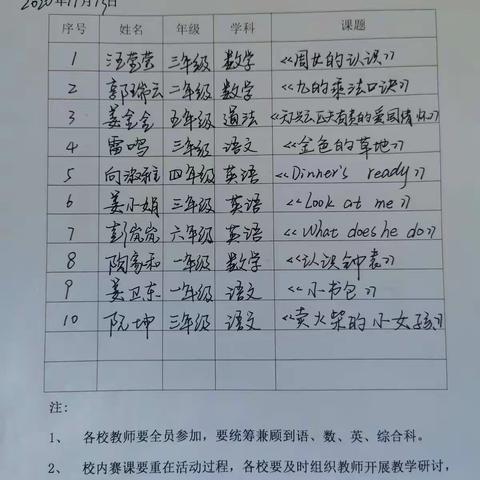 2020年11月13日
序号 姓名 年级 学科 课题
1 汪莹莹 三年级 数学 《周长的认识》
2 郭瑞云 二年级 数学 《九的乘法口诀》
3 姜金金 五年级 道法 《天下兴亡匹夫有责的爱国情怀》
4 雷鸣 三年级 语文 《金色的草地》
5 向淑雅 四年级 英语 《Dinner's ready》
6 姜小娟 三年级 英语 《Look at me》
7 彭岚岚 六年级 英语 《What does he do》
8 陶家和 一年级 数学 《认识钟表》
9 姜卫东 一年级 语文 《小书包》
10 阮坤 三年级 语文 《卖火柴的小女孩》
注:
1、 各校教师要全员参加，要统筹兼顾到语、数、英、综合科。
2、 校内赛课要重在活动过程，各校要及时组织教师开展教学研讨，